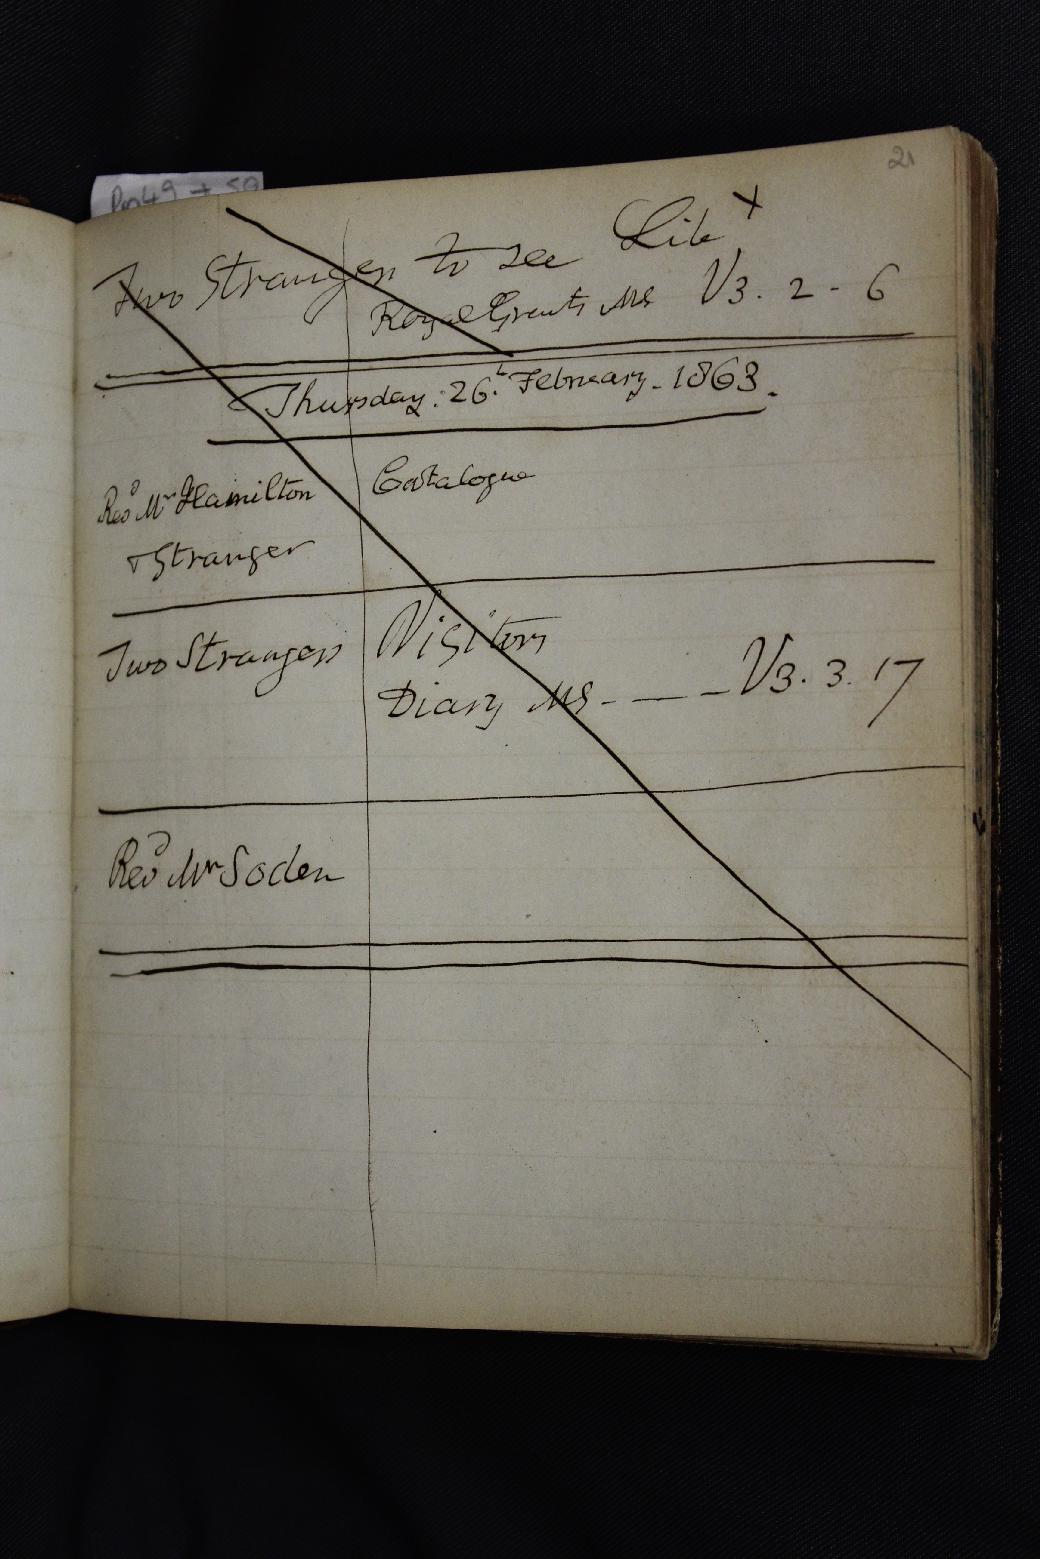 21
Two Strangers to see Lib x
Royal Grants MS V3. 2 - 6
Thursday. 26th February. 1863.
Revd Mr Hamilton
Catalogue
& Stranger
Two Strangers
Visitors
Diary MS - — - V3. 3. 17
Revd Mr Soden